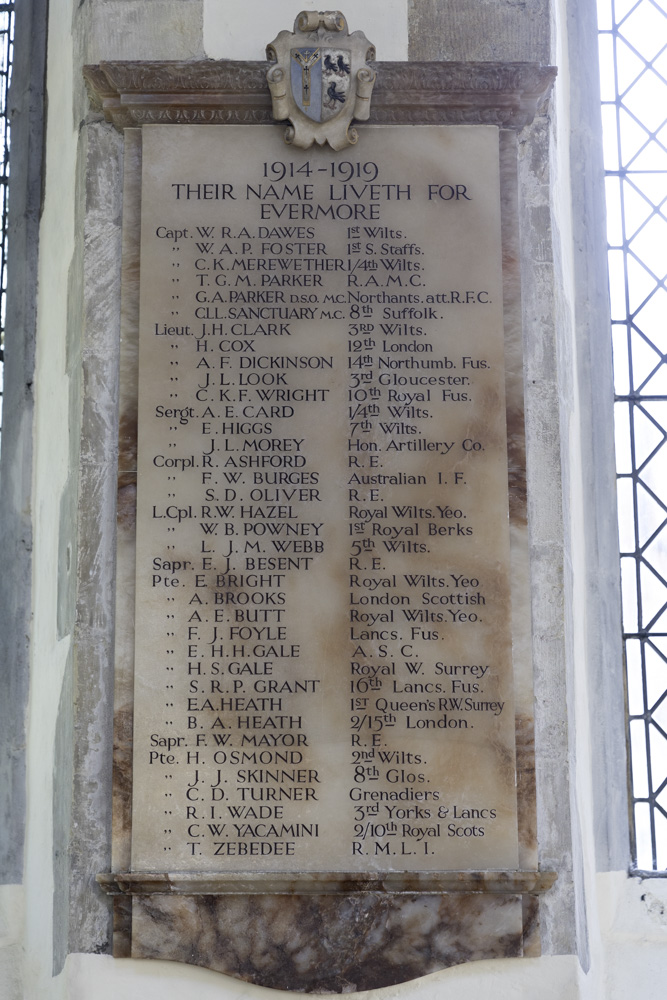 1914-1919
THEIR NAME LIVETH FOR
EVERMORE
Capt. W. R. A. DAWES 1st Wilts.
" W. A. P. FOSTER 1st S. Staffs.
" C. K. MEREWETHER 1/4th Wilts.
" T. G. M. PARKER R. A. M. C.
" G. A. PARKER D.S.O. M.C. Northants. att. R. F. C.
" C. L. L. SANCTUARY M.C. 8th Suffolk.
Lieut. J. H. CLARK 3RD Wilts.
" H. COX 12th London
" A. F. DICKINSON 14th Northumb. Fus.
" J. L. LOOK 3rd Gloucester.
" C. K. F. WRIGHT 10th Royal Fus.
Sergt. A. E. CARD 1/4th Wilts.
" E. HIGGS 7th Wilts.
" J. L. MOREY Hon. Artillery Co.
Corpl. R. ASHFORD R. E.
" F. W. BURGES Australian I. F.
" S. D. OLIVER R. E.
L.Cpl. R. W. HAZEL Royal Wilts. Yeo.
" W. B. POWNEY 1st Royal Berks
" L. J. M. WEBB 5th Wilts.
Sapr. E. J. BESENT R. E.
Pte. E. BRIGHT Royal Wilts. Yeo
" A. BROOKS London Scottish
" A. E. BUTT Royal Wilts. Yeo.
" F. J. FOYLE Lancs. Fus.
" E. H. H. GALE A. S. C.
" H. S. GALE Royal W. Surrey
" S. R. P. GRANT 16th Lancs. Fus.
" E. A. HEATH 1ST Queen's R. W. Surrey
" B. A. HEATH 2/15th London.
Sapr. F. W. MAYOR R. E.
Pte. H. OSMOND 2nd Wilts.
" J. J. SKINNER 8th Glos.
" C. D. TURNER Grenadiers
" R. I. WADE 3rd Yorks & Lancs
" C. W. YACAMINI 2/10th Royal Scots
" T. ZEBEDEE R. M. L. I.